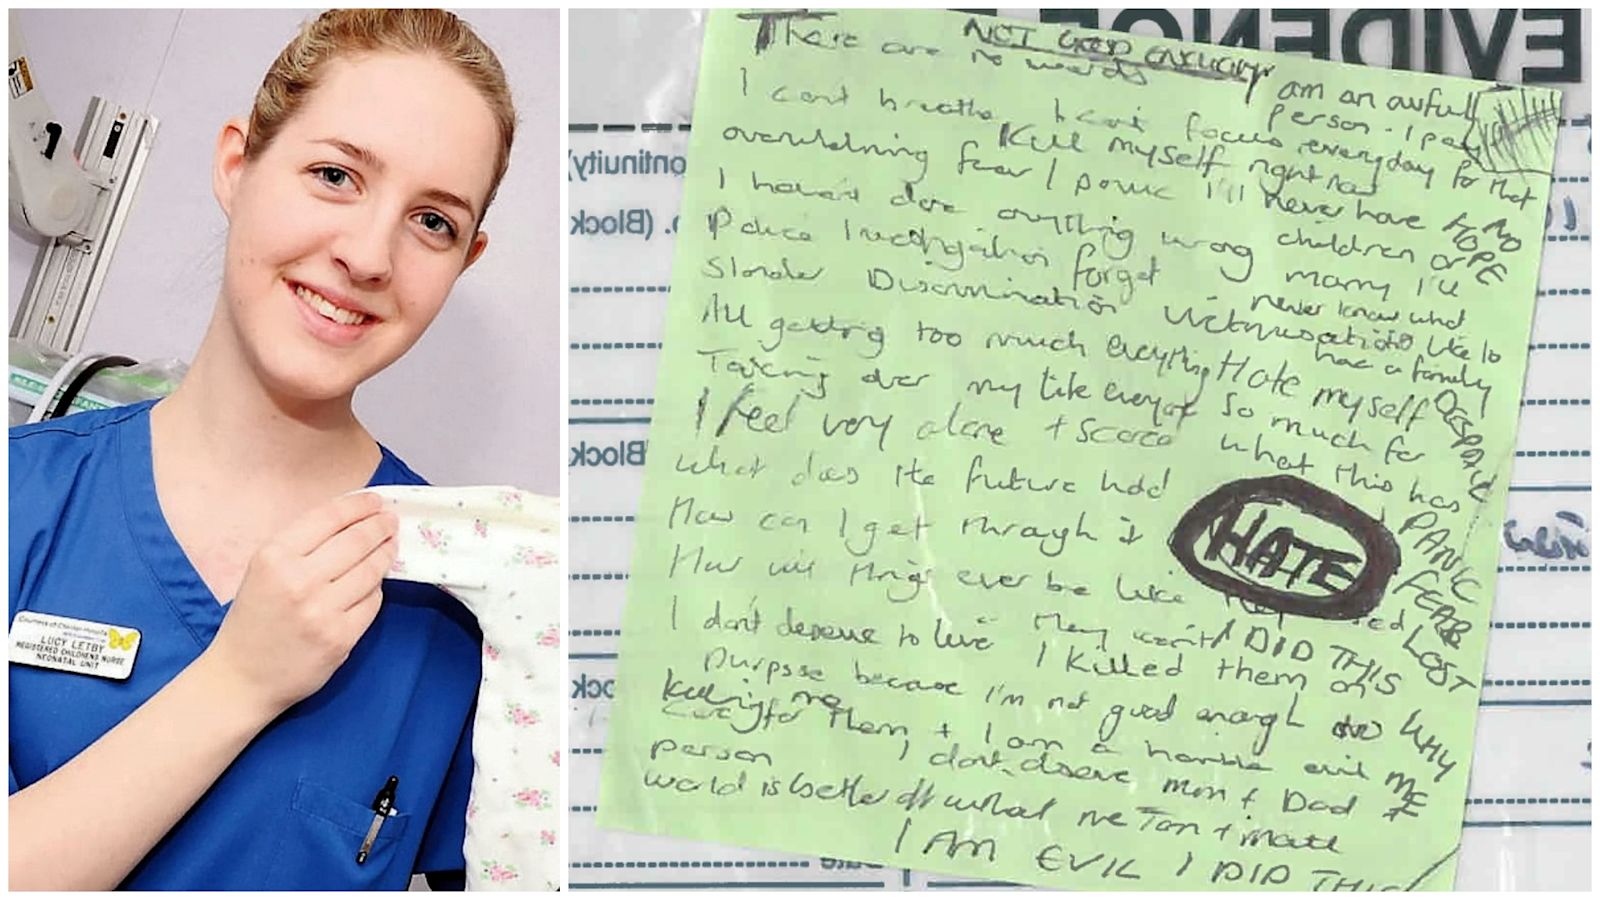 Countess of Chester Hospital
LUCY LETBY
REGISTERED CHILDRENS NURSE
NEONATAL UNIT
EVIDENCE
NOT GOOD ENOUGH
There are no words
I am an awful person - I pay everyday for that
I cant breathe I cant focus
Kill myself right now
overwhelming fear / panic
I'll never have children or marry I'll never know what it's like to have a family
NO HOPE
I haven't done anything wrong
Police investigation forget
Slander Discrimination Victimisation
All getting too much everything
Taking over my life everyone
Hate myself so much for what this has
DESPAIR
PANIC
FEAR
LOST
I feel very alone + scared
What does the future hold
How can I get through it
HATE
How will things ever be like they used
They won't
I DID THIS
WHY ME
I don't deserve to live I killed them on
purpose because I'm not good enough to
care for them + I am a horrible evil
person
Killing me
I don't deserve Mum + Dad
world is better off without me Tom + Matt
I AM EVIL I DID THIS
ontinuity)
(Block
Block
Block
ock